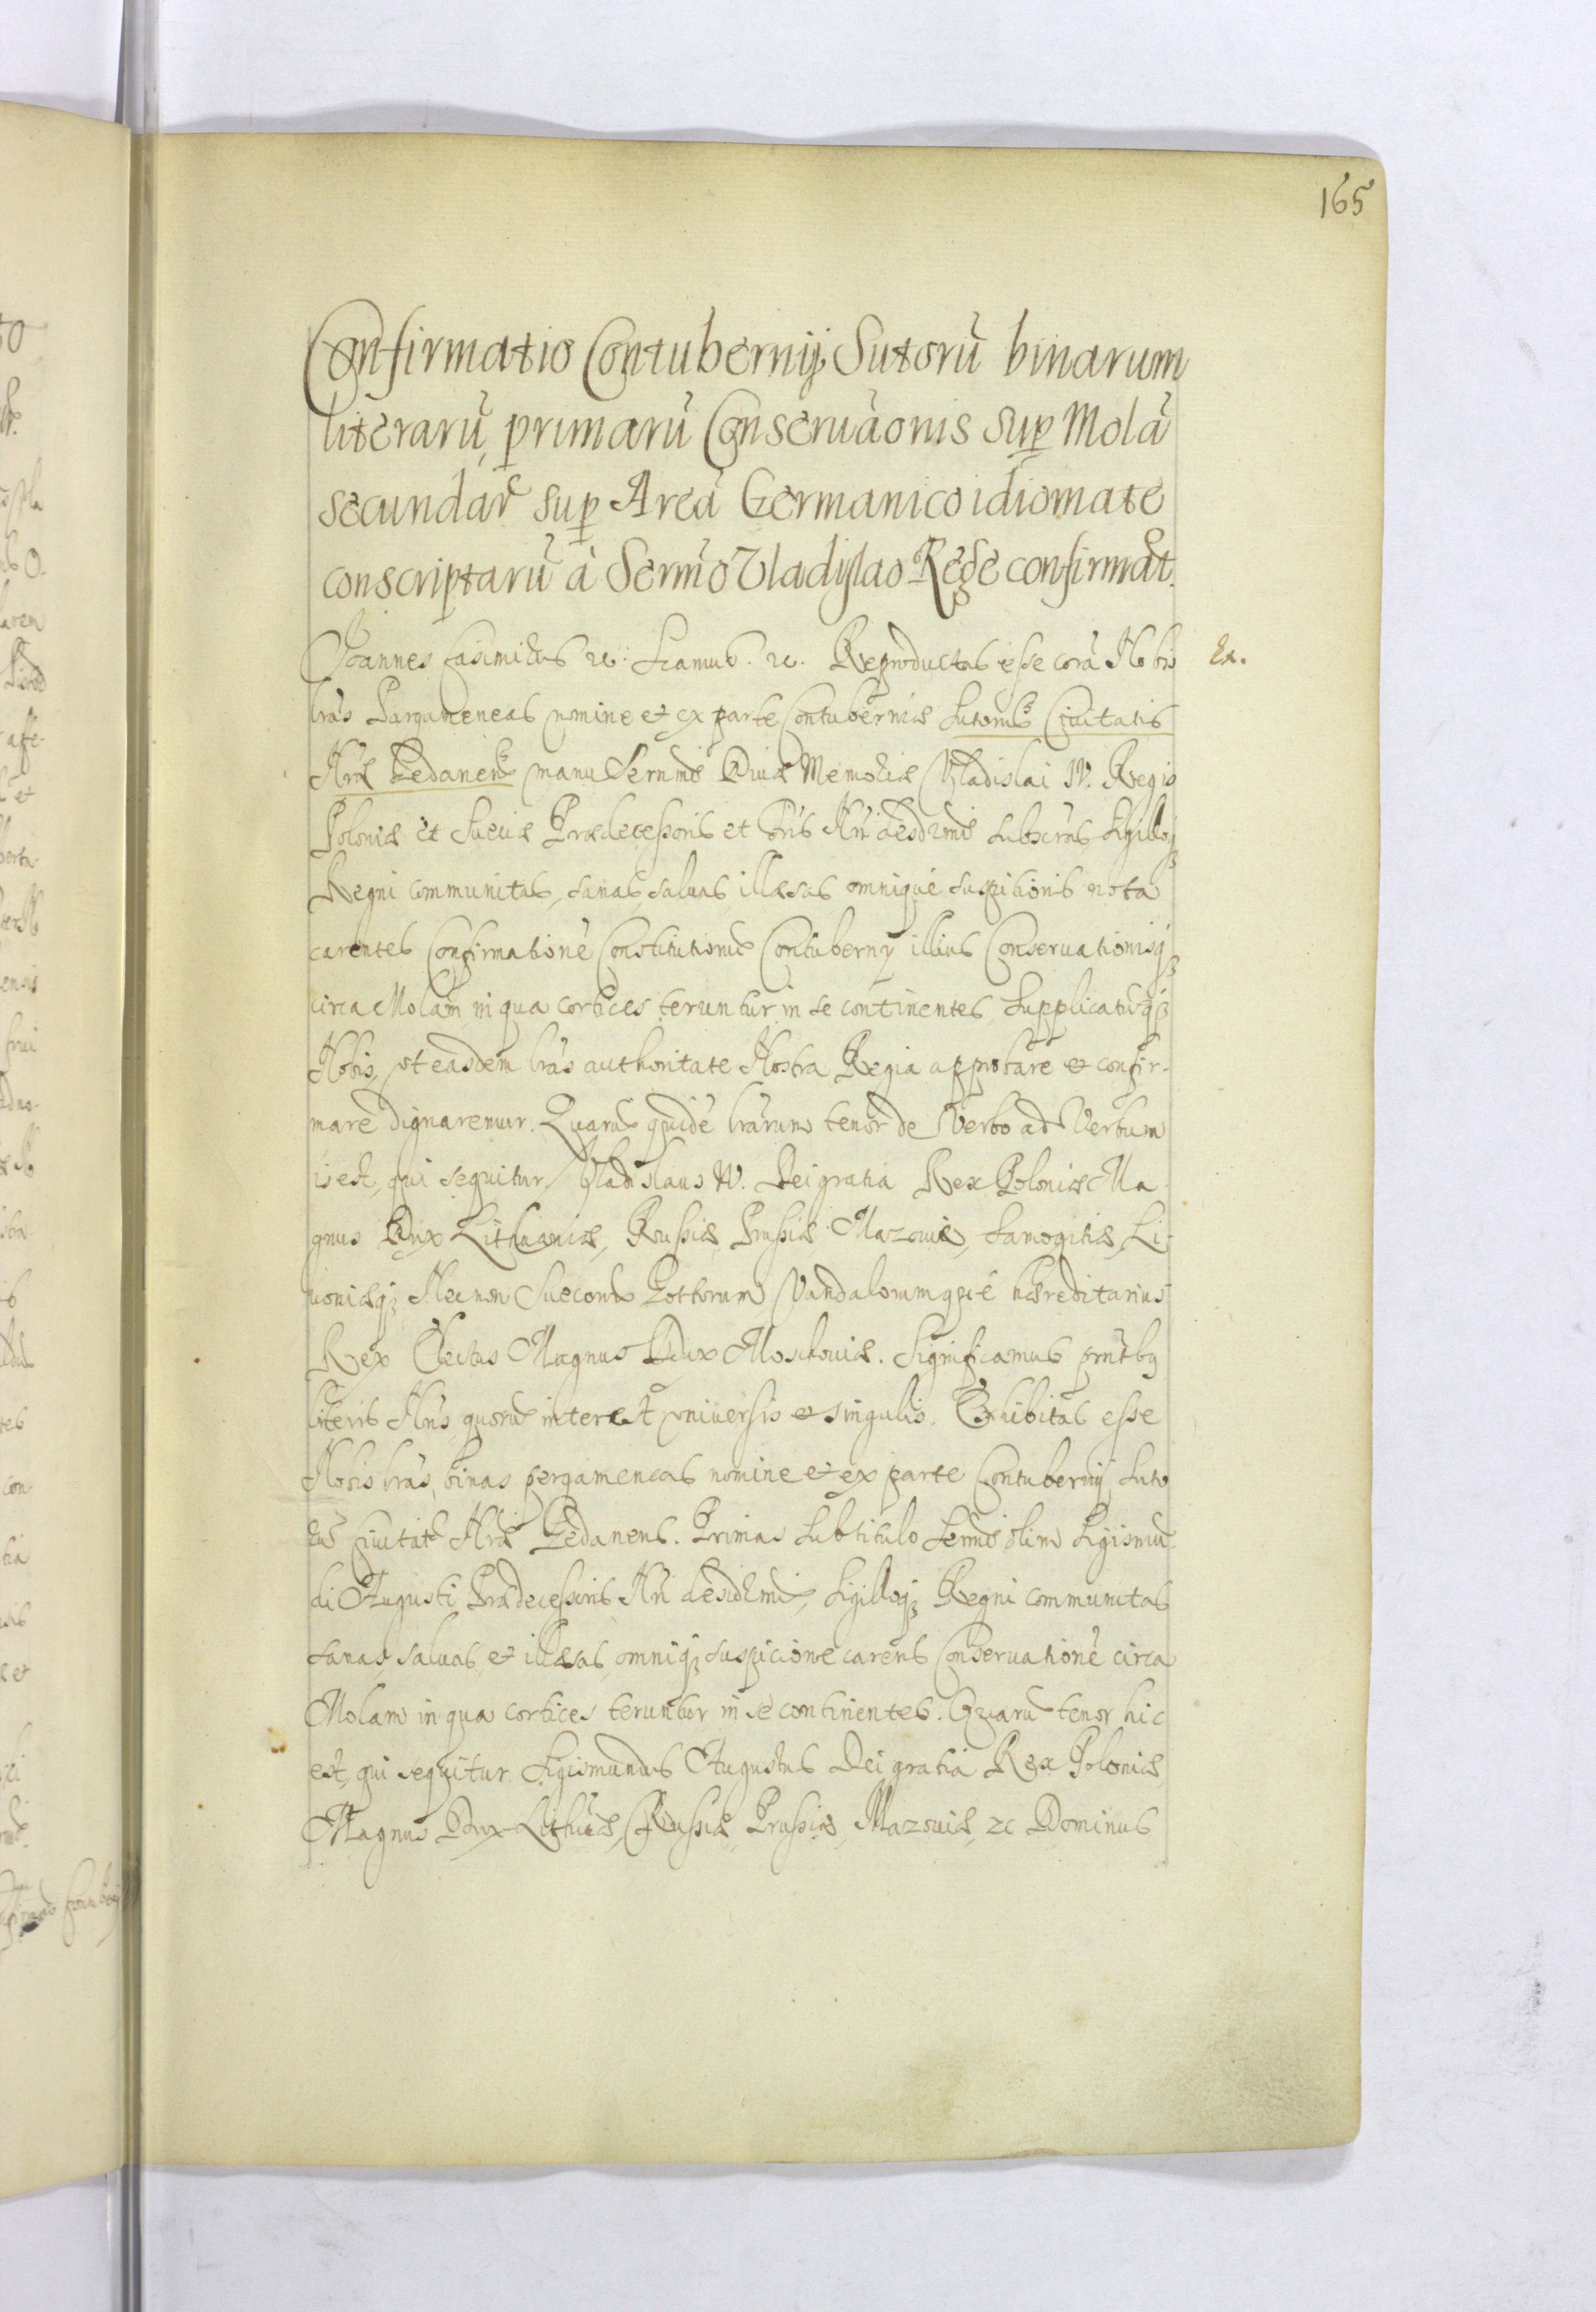 165
Confirmatio Contubernij Sutorũ binarum
literarũ, primarũ Conseruãonis sup Molã
secundar̃ sup Areã Germanico idiomate
conscriptarũ à Serm̃o Vladislao Rege confirmat.
Joannes Casimirus &c. Scamus. &c. Reproductas esse corã Nobis Ex.
lrãs Pargameneas nomine et ex parte Contuberniæ Sutorũ Ciuitatis
Nræ Gedanens manu Sernmi Diuæ Memoriæ Vladislai IV. Regis
Poloniæ et Sueciæ Prædecessoris et Fris Nri desidmi subscras Sigilloq;
Regni communitas, sanas, saluas illæsas omnique suspitionis nota
carentes Confirmationẽ Constitutionũ Contuberny illius Conseruationisq;
circa Molam in qua cortices teruntur in se continentes Supplicatũq;
Nobis, vt easdem lrãs authoritate Nostra Regia approbare et confir-
mare dignaremur. Quarũ quidẽ lrarum tenor de Verbo ad Verbum
is est, qui sequitur. Vladislaus IV. Dei gratia Rex Poloniæ Ma-
gnus Dux Lithuaniæ, Russiæ Prussiæ Mazouiæ, Samogitiæ, Li-
uoniæq; Necnon Suecorũ Gottorum Vandalorumque hæreditarius
Rex Electus Magnus Dux Moschouiæ. Significamus prntbg
literis Nris quorũ interest vniuersis et singulis. Exhibitas esse
Nobis lrãs binas pergameneas nomine et ex parte Contubernij Suto
rũ Ciuitatẽ Nræ Gedanens. Primas sub titulo Sermi olim Sigismũ-
di Augusti Prædecessoris Nri desidmi, Sigilloq; Regni communitas
sanas, saluas, et illæsas, omniq; suspicione carens Conseruationẽ circa
Molam in qua cortices teruntur in se continentes. Quarũ tenor hic
est, qui sequitur Sigismundus Augustus Dei gratia Rex Poloniæ,
Magnus Dux Lithũæ, Russiæ Prussiæ, Mazouiæ, &c Dominus